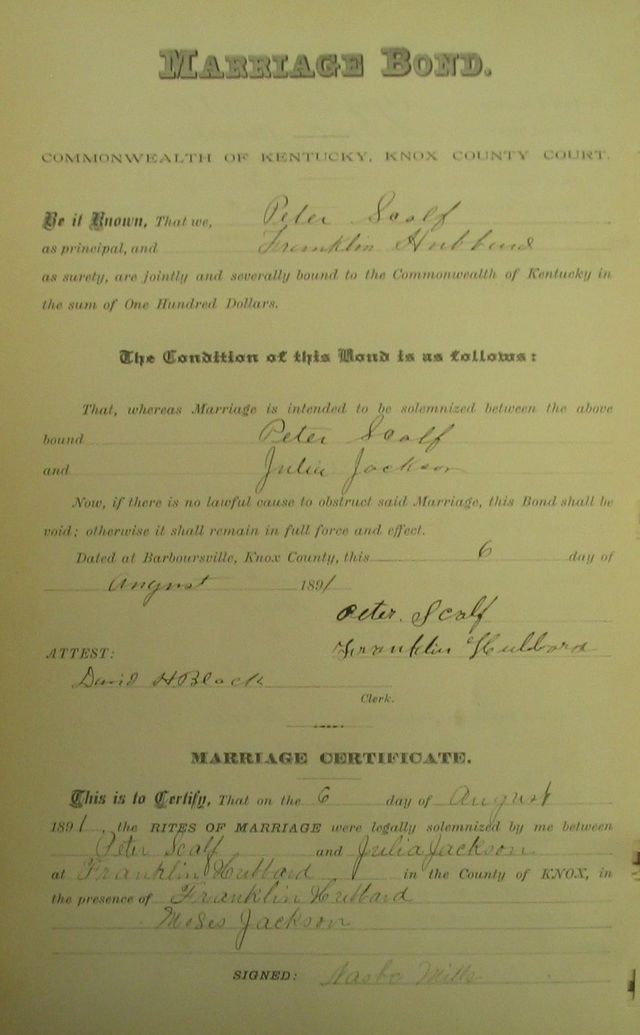 MARRIAGE BOND.
COMMONWEALTH OF KENTUCKY, KNOX COUNTY COURT.
Be it Known, That we, Peter Scalf
as principal, and Franklin Hubbard
as surety, are jointly and severally bound to the Commonwealth of Kentucky in
the sum of One Hundred Dollars.
The Condition of this Bond is as follows:
That, whereas Marriage is intended to be solemnized between the above
bound Peter Scalf
and Julia Jackson
Now, if there is no lawful cause to obstruct said Marriage, this Bond shall be
void; otherwise it shall remain in full force and effect.
Dated at Barboursville, Knox County, this 6 day of
August 1891
Peter. Scalf
ATTEST: Franklin Hubbard
David H Black
Clerk.
MARRIAGE CERTIFICATE.
This is to Certify, That on the 6 day of August
1891, the RITES OF MARRIAGE were legally solemnized by me between
Peter Scalf and Julia Jackson
at Franklin Hubbard in the County of KNOX, in
the presence of Franklin Hubbard
Moses Jackson
SIGNED: Mills